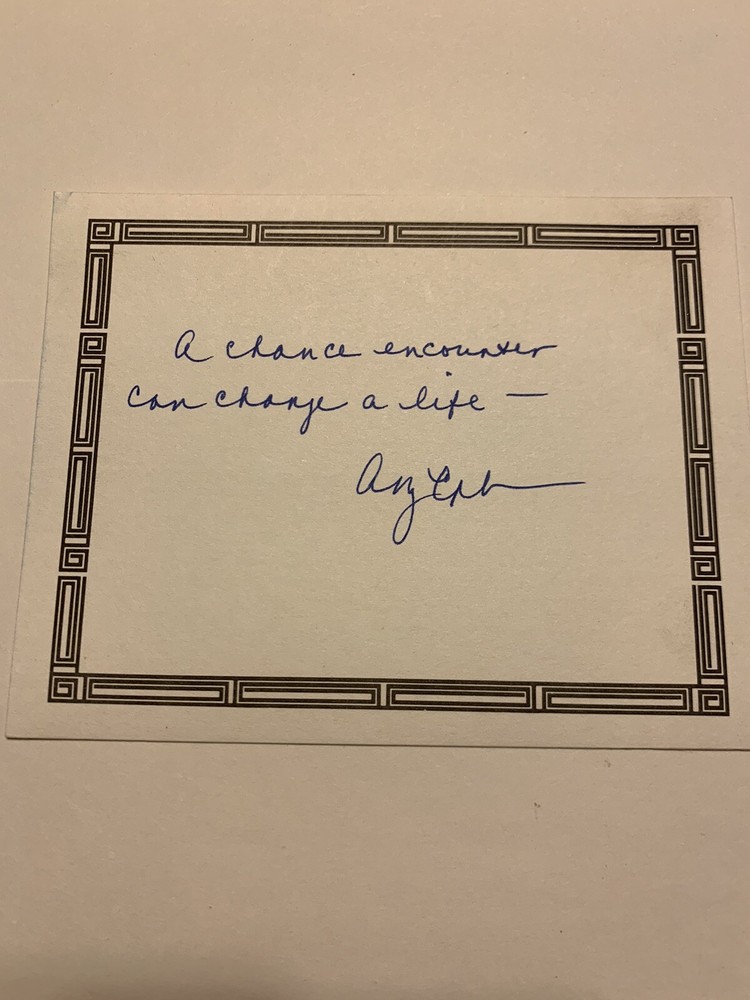 A chance encounter
can change a life —
Amy Eph